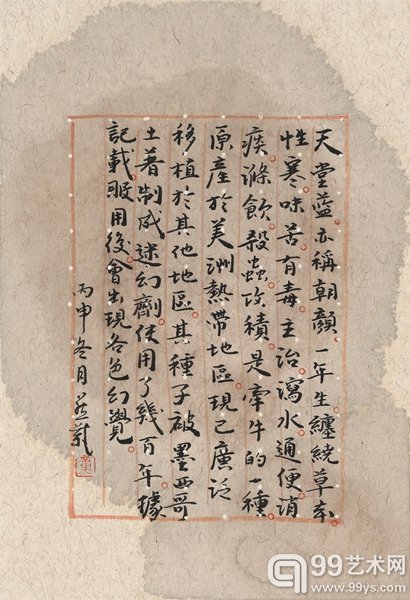 天堂藍亦稱朝顏一年生纏繞草本
性寒味苦有毒主治瀉水通便消
痰滌飲殺蟲攻積是牽牛的一種
原產於美洲熱帶地區現已廣泛
移植於其他地區其種子被墨西哥
土著制成迷幻劑使用了幾百年據
記載服用後會出現各色幻覺
丙申冬月
99艺术网
www.99ys.com